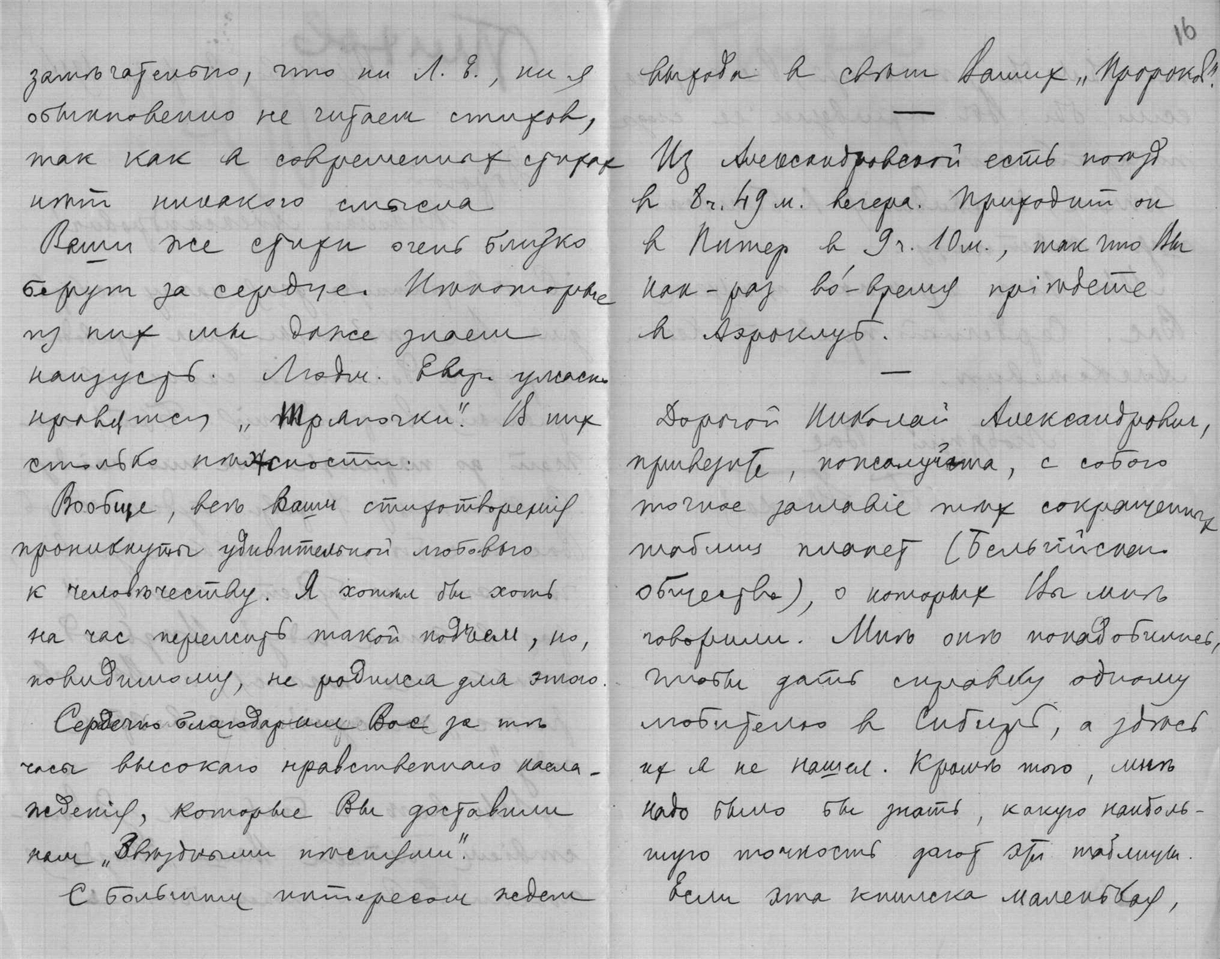 замѣчательно, что ни Л. Е., ни я
обыкновенно не читаем стихов,
так как в современных стихах
нѣт никакого смысла
Ваши же стихи очень близко
берут за сердце. Нѣкоторые
из них мы даже знаем
наизусть. Людм. Евгр. ужасно
нравятся „Тряпочки". В них
столько нѣжности.
Вообще, всѣ Ваши стихотворенія
проникнуты удивительной любовью
к человѣчеству. Я хотѣл бы хоть
на час пережить такой подъем, но,
повидимому, не родился для этого.
Сердечно благодарим Вас за тѣ
часы высокаго нравственнаго насла-
жденія, которые Вы доставили
нам „Звѣздными пѣснями".
С большим интересом ждем
16
выхода в свѣт Ваших „Пророков".
Из Александровской есть поѣзд
в 8 ч. 49 м. вечера. Приходит он
в Питер в 9 ч. 10 м., так что Вы
как-раз во́-время пріѣдете
в Аэроклуб.
Дорогой Николай Александрович,
привезите, пожалуйста, с собою
точное заглавіе тѣх сокращенных
таблиц планет (Бельгійскаго
общества), о которых Вы мнѣ
говорили. Мнѣ онѣ понадобились,
чтобы дать справку одному
любителю в Сибирь, а здѣсь
их я не нашел. Кромѣ того, мнѣ
надо было бы знать, какую наиболь-
шую точность дают эти таблицы.
Если эта книжка маленькая,